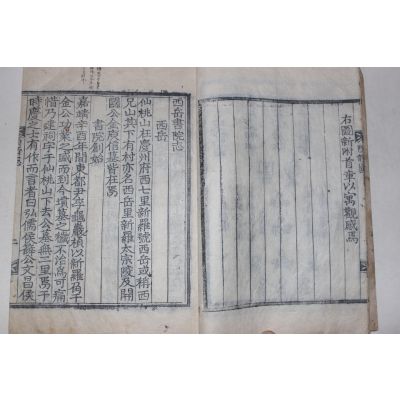 右圖新附首章以寓觀感焉
西岳書院志
西岳
仙桃山在慶州府西七里新羅號西岳或稱西
兄山其下有村亦名西岳里新羅太宗陵及開
國公金庾信墓皆在焉
書院創始
嘉靖辛酉年間東都尹李龜巖楨以新羅角干
金公功業之盛而到今墳墓之穢不治爲可痛
惜乃建祠宇于仙桃山下去公墓無一里焉于
時慶之士有作而言者曰弘儒侯薛公文昌侯